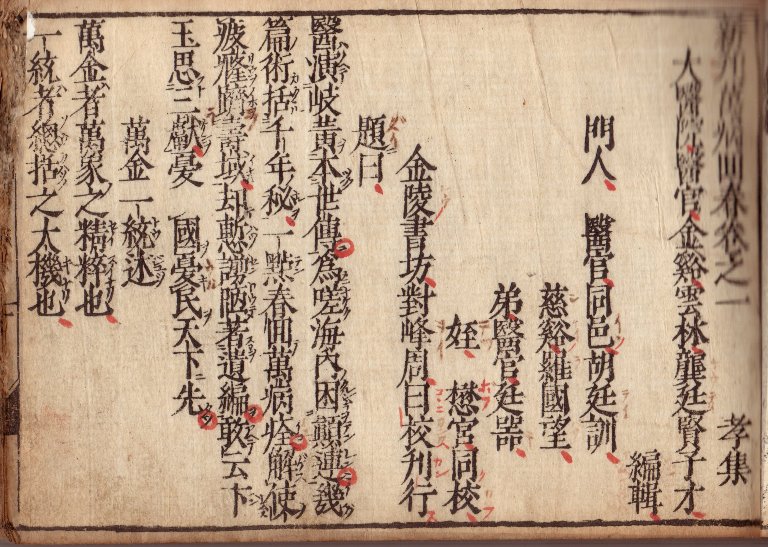 新刋萬病回春卷之一　孝集
太醫院醫官金谿雲林龔廷賢子才　編輯
門人　醫官同邑胡廷訓
慈谿羅國望
弟醫官廷器
姪　懋官同校
金陵書坊對峰周曰校刊行
題曰
醫演岐黃本世傳爲嗟海內困顛連幾
篇術括千年秘一點春回萬病痊解使
疲癃躋壽域却慙謭陋著遺編敢云下
玉思三獻憂　國憂民天下先
萬金一統述
萬金者萬象之精粹也
一統者總括之大機也